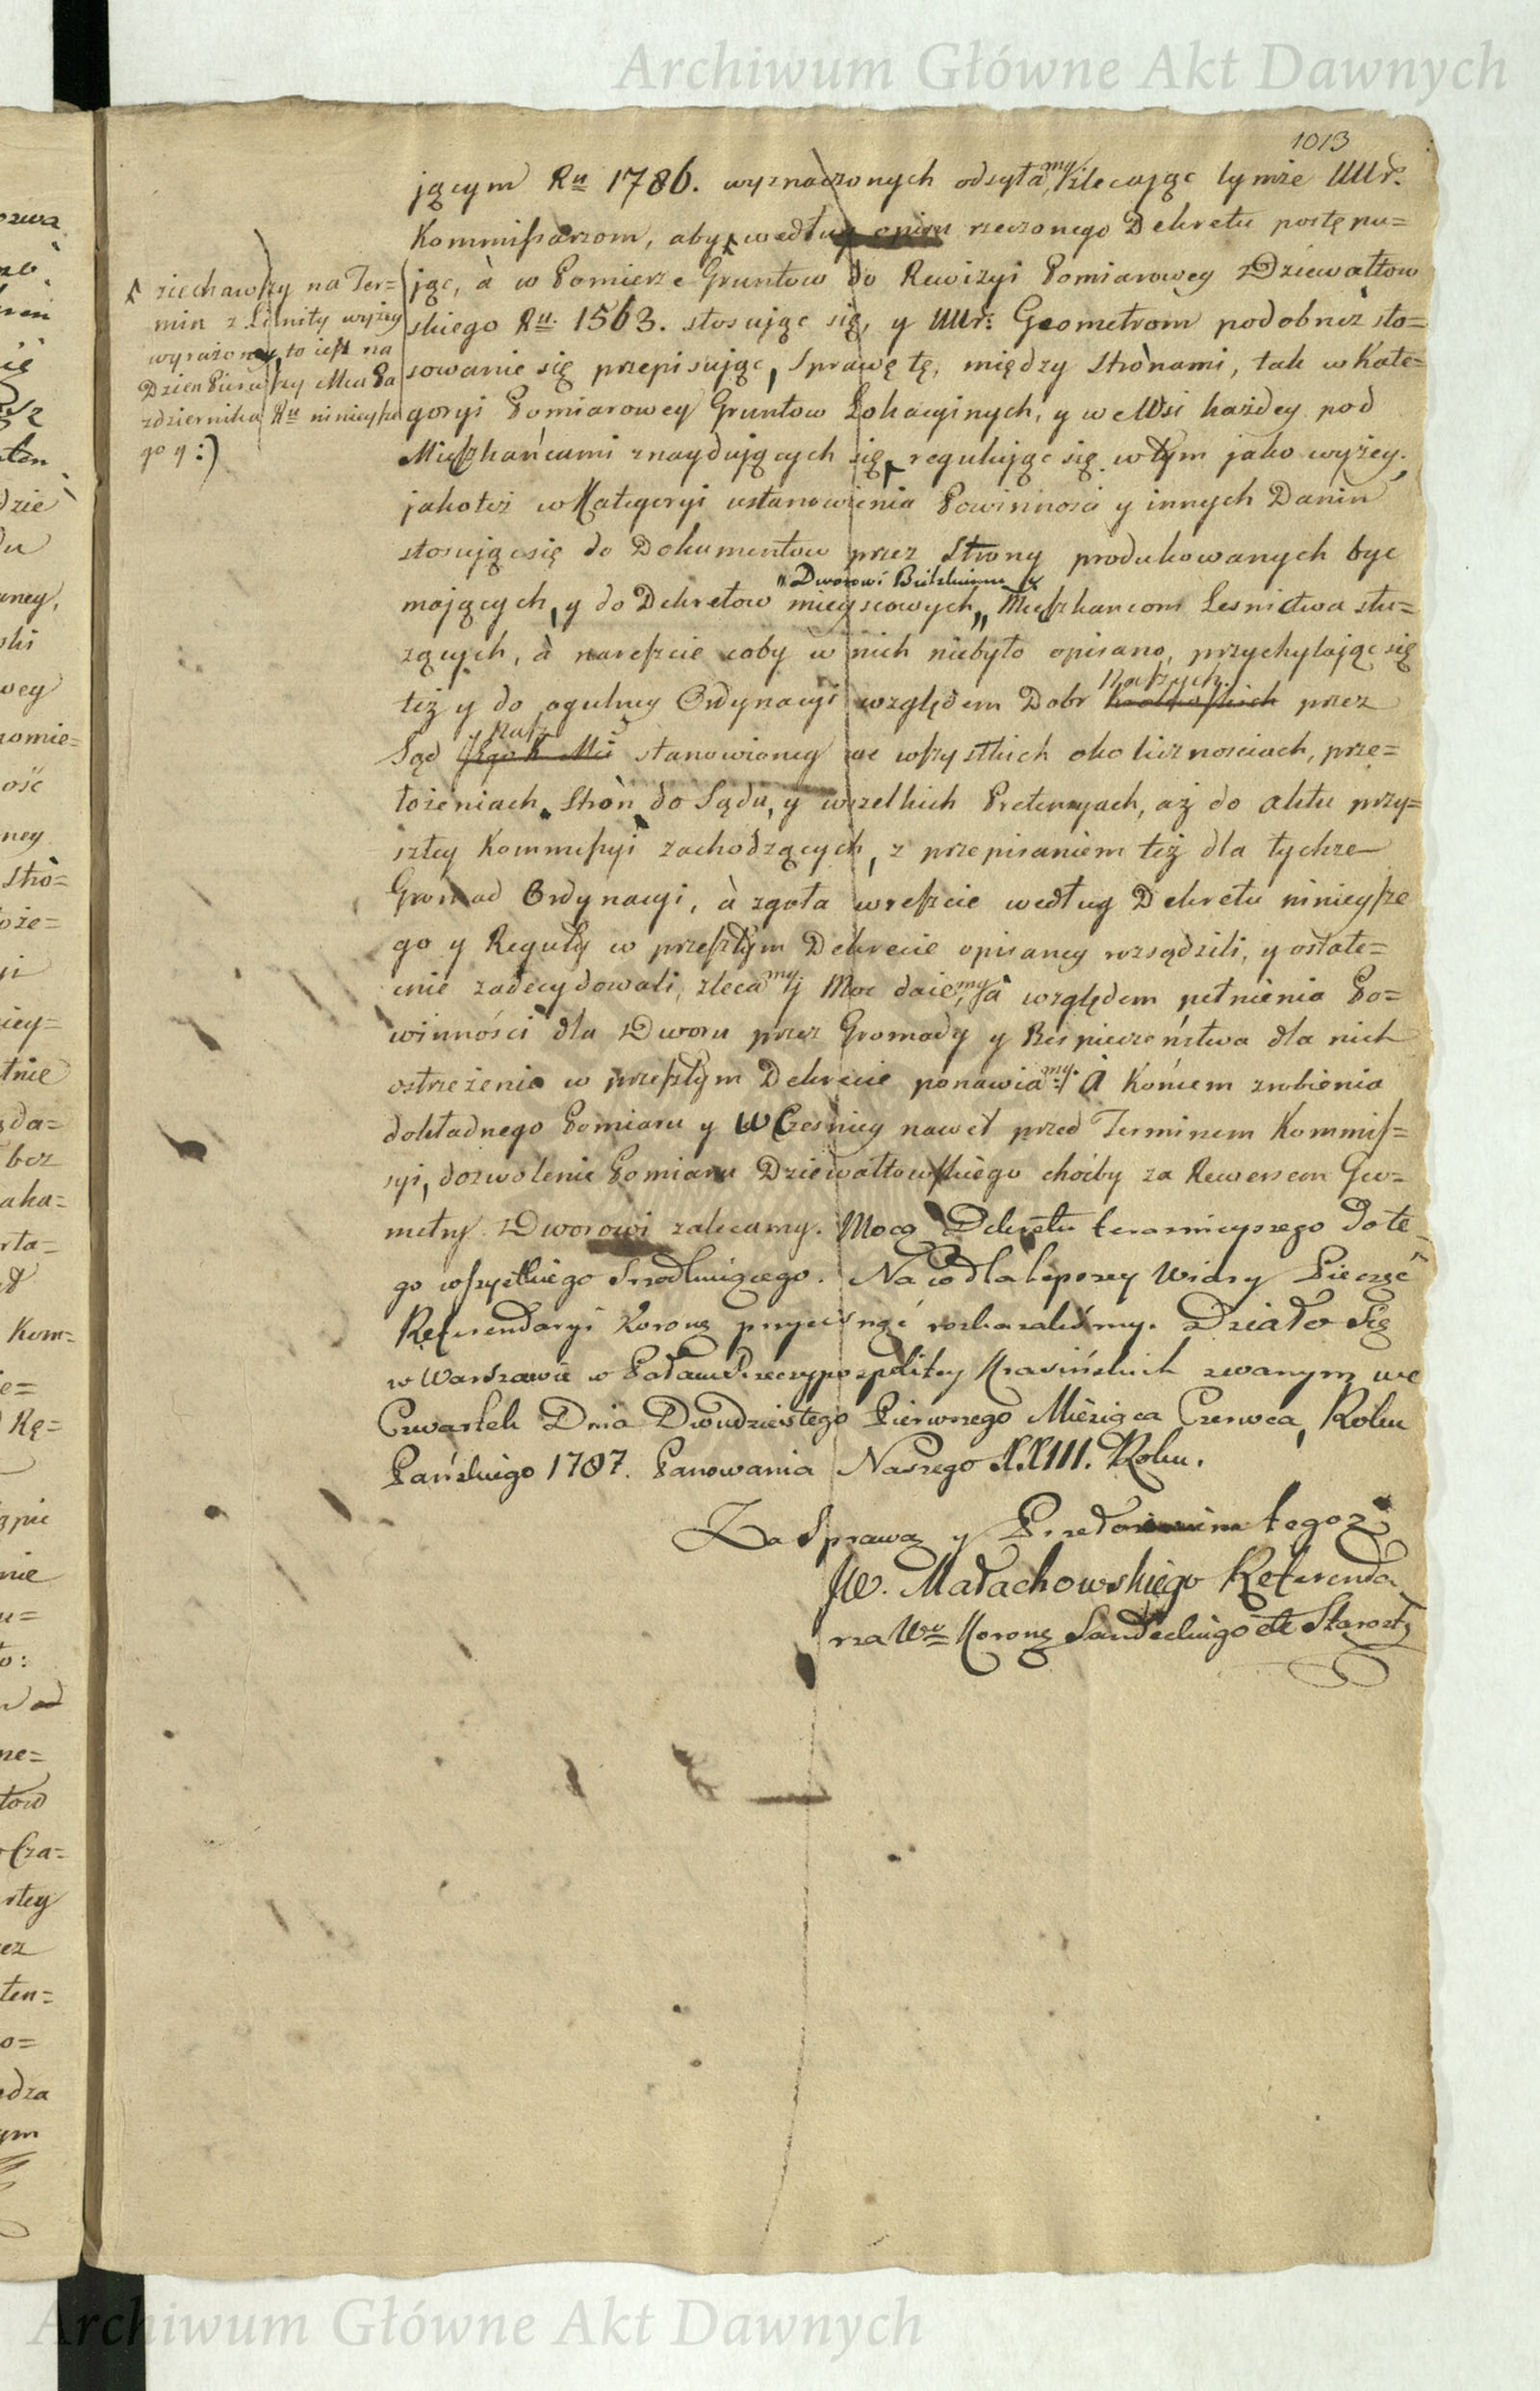 Archiwum Główne Akt Dawnych
1013
jącym Ru 1786. wyznaczonych odsyła my, Zlecając tymże UUr.
Kommißarzom, aby według opisu rzeczonego Dekretu postępu=
jąc, à w Pomierze Gruntow do Rewizyi Pomiarowey Dziewałtow
skiego Ru. 1563. stosując się, y UUr: Geometrom podobnież sto=
sowanie się przepisując, Sprawę tę, między Strònami, tak w Kate=
goryi Pomiarowey Gruntow Lokacyinych, y w Wsi każdey pod
Mießkańcami znayduiących się, regulując się w tym jako wyżey.
jakoteż w Kategoryi ustanowienia Powinnosci y innych Danin
stosując się do Dokumentow przez Strony produkowanych bydz
„Dworowi Bielskiemu y
mających, y do Dekretow mieyscowych „ Mießkancom Lesnictwa słu=
zących, à nareßcie coby w nich niebyło opisano, przychylając się
Naßych.
też y do ogulney Ordynacyi względem Dobr Krolewskich przez
Naß
Sąd Jego K Mci stanowioney we wßystkich okolicznosciach, prze=
łożeniach Stròn do Sądu, y wszelkich Pretensyach, aż do aktu przy=
szłey Kommißyi zachodzących, z przepisaniem też dla tychże
Gromad Ordynacyi, à zgoła wreßcie według Dekretu ninieyße
go y Reguły w przeßłym Dekrecie opisaney rozsądzili, y ostate=
cznie zadecydowali, zleca my y Moc daie my, à względem pełnienia Po=
winności dla Dworu przez Gromady y Bespieczeństwa dla nich
ostrzeżenie w przeßłym Dekrecie ponawia my. A Końcem zrobienia
dokładnego Pomiaru y Wczesniey nawet przed Terminem Kommiß=
syi, dozwolenie Pomiaru Dziewałtowßkiego choćby za Rewersem Geo=
metry Dworowi zalecamy. Mocą Dekretu teraznieyszego do te
go wßystkiego Srzodkuiącego. Na co dla lepszey Wiary Pieczęć
Referendaryi Koronę przycisnąć rozkazaliśmy. Działo Się
w Warszawie w Pałacu Rzeczypospolitey Krasińskich zwanym we
Czwartek Dnia Dwudziestego Pierwszego Miesiąca Czerwca, Roku
Pańskiego 1787. Panowania Naszego XXIII. Roku.
Za Sprawą y tegoż
JW. Małachowskiego Referenda
rza Wgo Koronę Sandeckiego etc Starosty
ziechawßy na Ter=
min z Limity wyżey
wyrażoney, to ießt na
Dzien Pierwßy Mca Pa
zdziernika Ru ninieyße
go y :)
Archiwum Główne Akt Dawnych